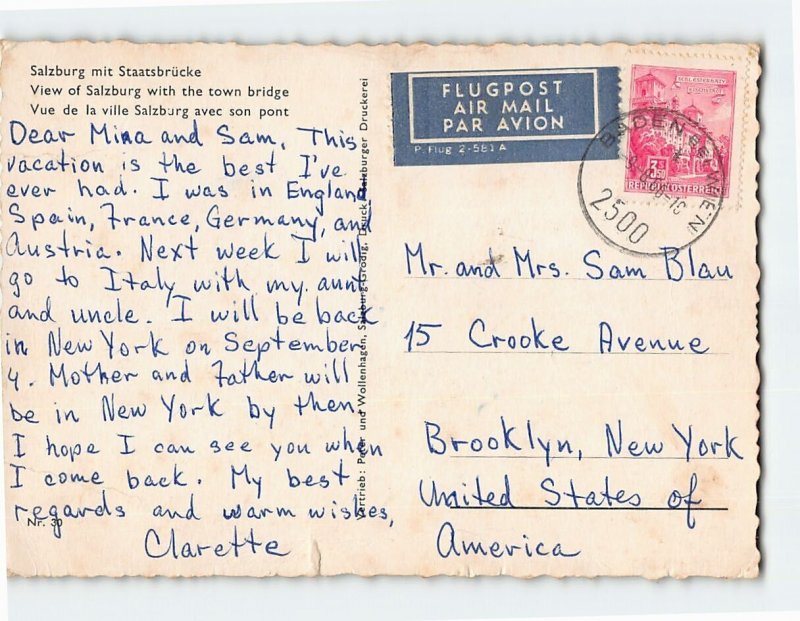 Salzburg mit Staatsbrücke
View of Salzburg with the town bridge
Vue de la ville Salzburg avec son pont
Dear Mina and Sam, This
vacation is the best I've
ever had. I was in England
Spain, France, Germany, and
Austria. Next week I will
go to Italy with my aunt
and uncle. I will be back
in New York on September
4. Mother and Father will
be in New York by then.
I hope I can see you when
I come back. My best
regards and warm wishes,
Clarette
Nr. 30
Vertrieb: Peter und Wollenhagen, Salzburg-Grödig, Druck: Salzburger Druckerei
FLUGPOST
AIR MAIL
PAR AVION
P. Flug 2-581 A
REPUBLIK ÖSTERREICH
BADEN BEI WIEN
2500
Mr. and Mrs. Sam Blau
15 Crooke Avenue
Brooklyn, New York
United States of
America